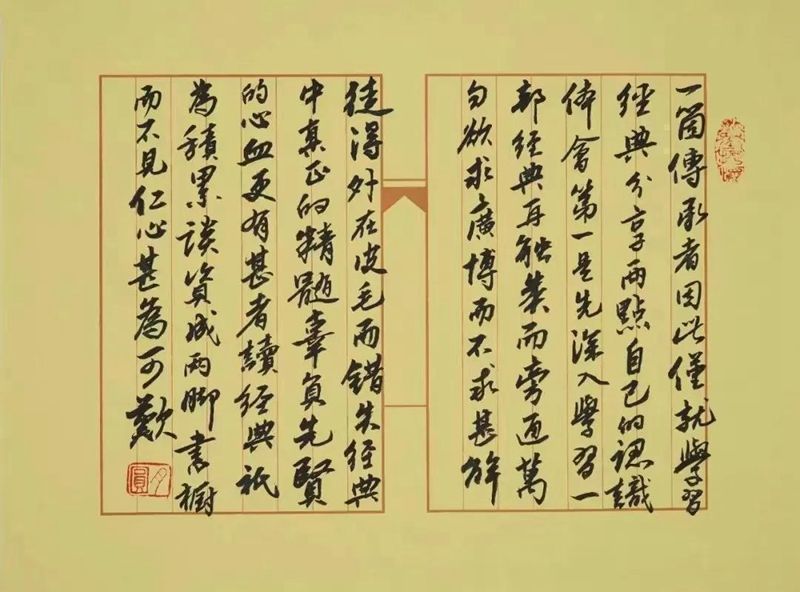 一箇傳承者因此僅就學習
經典分享兩點自己的認識
体會第一是先深入學習一
部經典再触类而旁通萬
勿欲求廣博而不求甚解
徒得外在皮毛而錯失經典
中真正的精髓辜負先賢
的心血更有甚者讀經典祇
為積累談資成兩脚書櫥
而不見仁心甚為可歎